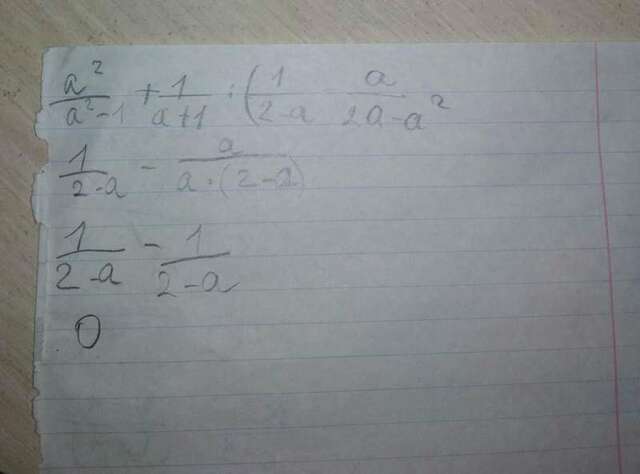 a²/(a²-1) + 1/(a+1) : (1/(2-a) a/(2a-a²)
1/(2-a) - a/(a·(2-a))
1/(2-a) - 1/(2-a)
0